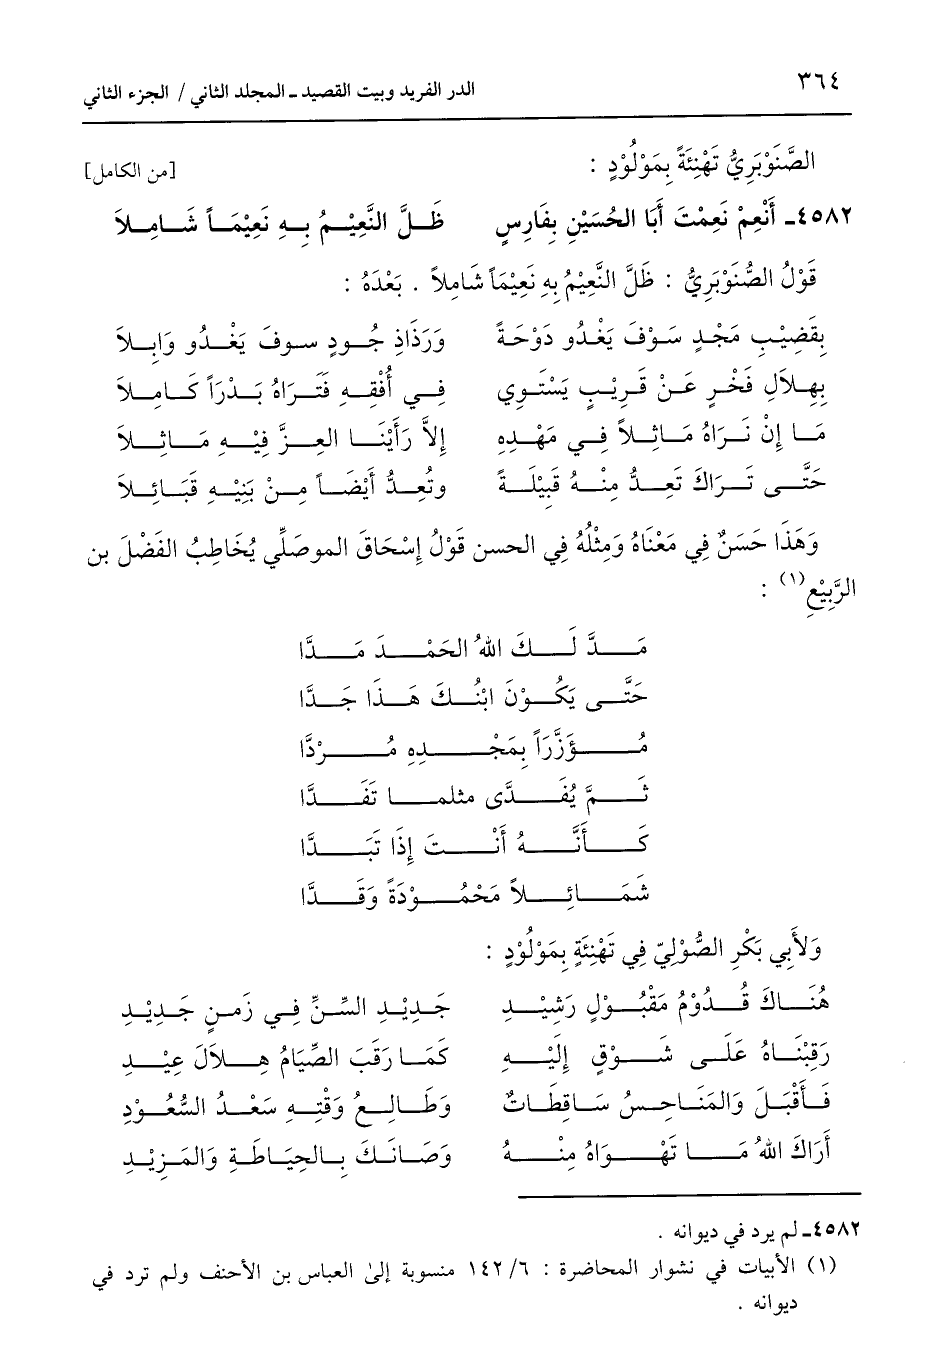 ٣٦٤ الدر الفريد وبيت القصيد ـ المجلد الثاني / الجزء الثاني
الصَّنَوْبَرِيُّ تَهْنِئَةً بِمَوْلُوْدٍ : [من الكامل]
٤٥٨٢ـ أَنْعِمْ نَعِمْتَ أَبَا الحُسَيْنِ بِفَارِسٍ ظَلَّ النَّعِيْمُ بِهِ نَعِيْمَاً شَامِلاَ
قَوْلُ الصُّنَوْبَرِيُّ : ظَلَّ النَّعِيْمُ بِهِ نَعِيْمَاً شَامِلاً . بَعْدَهُ :
بِقَضِيْبِ مَجْدٍ سَوْفَ يَغْدُو دَوْحَةً وَرَذَاذِ جُودٍ سوفَ يَغْدُو وَابِلاَ
بِهِلاَلِ فَخْرٍ عَنْ قَرِيْبٍ يَسْتَوِي فِي أُفْقِهِ فَتَرَاهُ بَدْرَاً كَامِلاَ
مَا إِنْ نَرَاهُ مَاثِلاً فِي مَهْدِهِ إِلاَّ رَأَيْنَا العِزَّ فِيْهِ مَاثِلاَ
حَتَّى تَرَاكَ تَعدُّ مِنْهُ قَبِيْلَةً وتُعدُّ أَيْضَاً مِنْ بَنِيْهِ قَبَائِلاَ
وَهَذَا حَسَنٌ فِي مَعْنَاهُ وَمِثْلُهُ فِي الحسن قَوْلُ إِسْحَاقَ الموصَلِّي يُخَاطِبُ الفَضْلَ بن
الرَّبِيْعِ(١) :
مَدَّ لَكَ اللهُ الحَمْدَ مَدَّا
حَتَّى يَكُوْنَ ابْنُكَ هَذَا جَدَّا
مُؤَزَّرَاً بِمَجْدِهِ مُرْدَّا
ثَمَّ يُفَدَّى مثلما تَفَدَّا
كَأَنَّهُ أَنْتَ إِذَا تَبَدَّا
شَمَائِلاً مَحْمُوْدَةً وَقَدَّا
وَلأَبِي بَكْرِ الصُّوْلِيّ فِي تَهْنِئَةٍ بِمَوْلُوْدٍ :
هُنَاكَ قُدُوْمُ مَقْبُوْلٍ رَشِيْدِ جَدِيْدِ السِّنِّ فِي زَمنٍ جَدِيْدِ
رَقِبْنَاهُ عَلَى شَوْقٍ إِلَيْهِ كَمَا رَقَبَ الصِّيَامُ هِلاَلَ عِيْدِ
فَأَقْبَلَ وَالمَنَاحِسُ سَاقِطَاتٌ وَطَالِعُ وَقْتِهِ سَعْدُ السُّعُوْدِ
أَرَاكَ اللهُ مَا تَهْوَاهُ مِنْهُ وَصَانَكَ بِالحِيَاطَةِ وَالمَزِيْدِ
٤٥٨٢ـ لم يرد في ديوانه .
(١) الأبيات في نشوار المحاضرة : ٦/ ١٤٢ منسوبة إلى العباس بن الأحنف ولم ترد في
ديوانه .